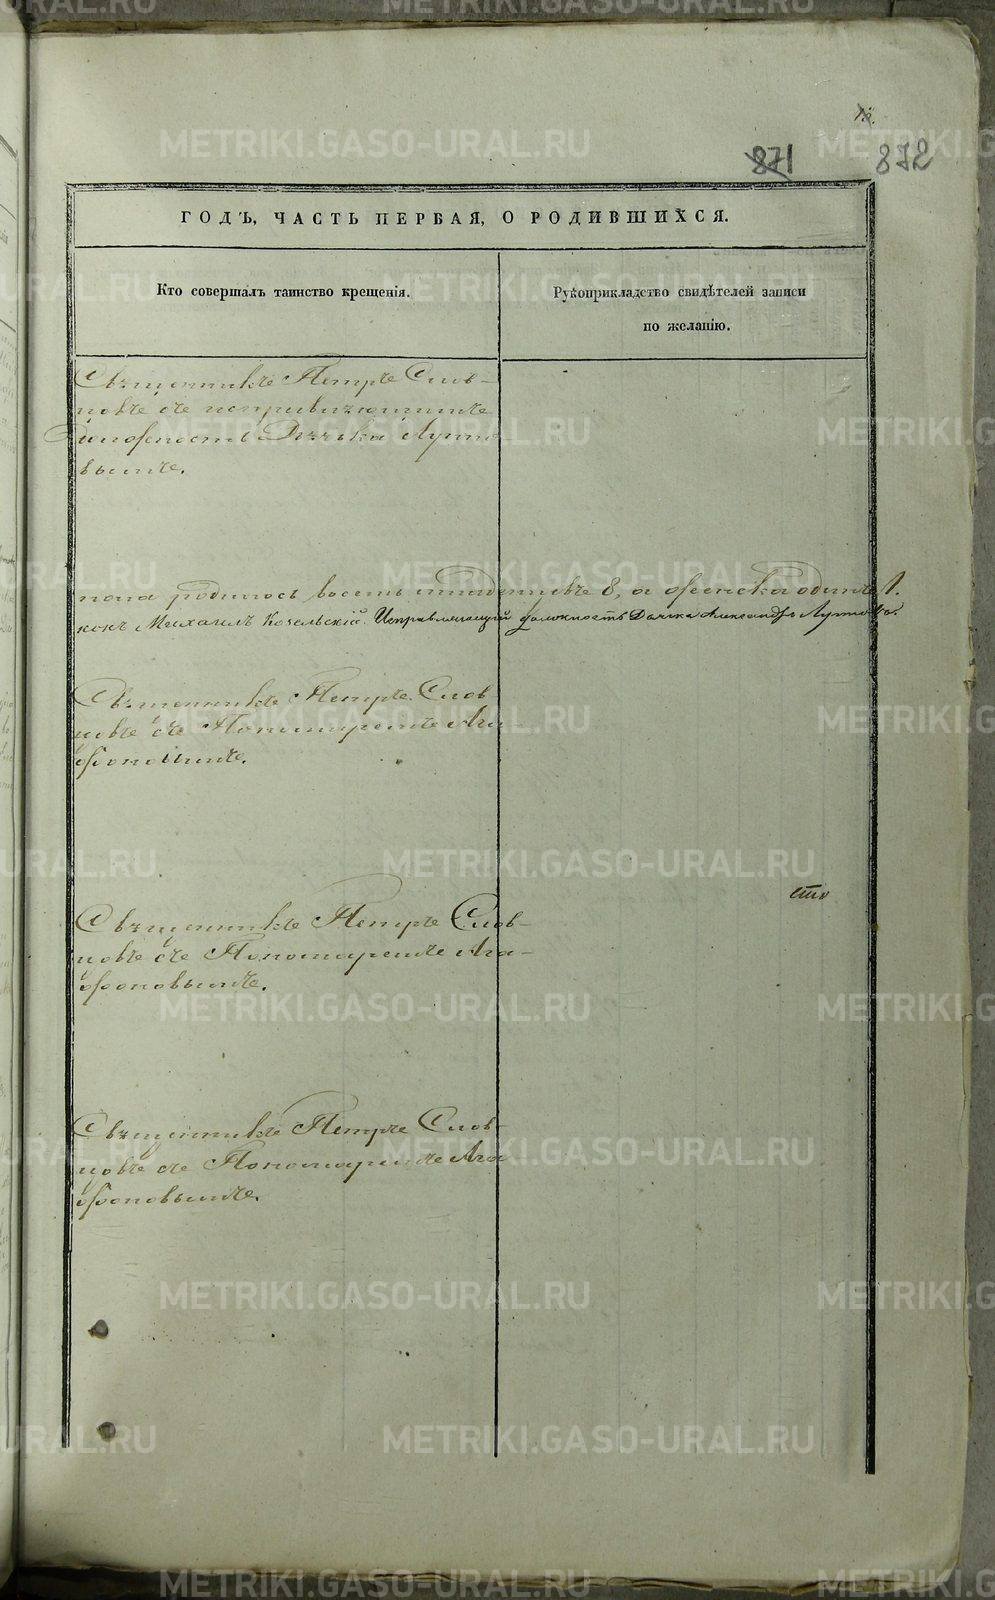 METRIKI.GASO-URAL.RU
871 872
ГОДЪ, ЧАСТЬ ПЕРВАЯ, О РОДИВШИХСЯ.
Кто совершалъ таинство крещенія.
Рукоприкладство свидѣтелей записи
по желанію.
Священникъ Петръ Слов-
цовъ съ исправляющимъ
должность Дьячка Луппо-
вымъ.
пола родилось восемь младенцевъ 8, а женска одинъ 1.
конъ Михаилъ Козельскій. Исправляющій должность Дьячка Александръ Лупповъ.
Священникъ Петръ Слов
цовъ съ Пономаремъ Ага
фоновымъ.
Священникъ Петръ Слов-
цовъ съ Пономаремъ Ага-
фоновымъ.
Священникъ Петръ Слов-
цовъ съ Пономаремъ Ага
фоновымъ.